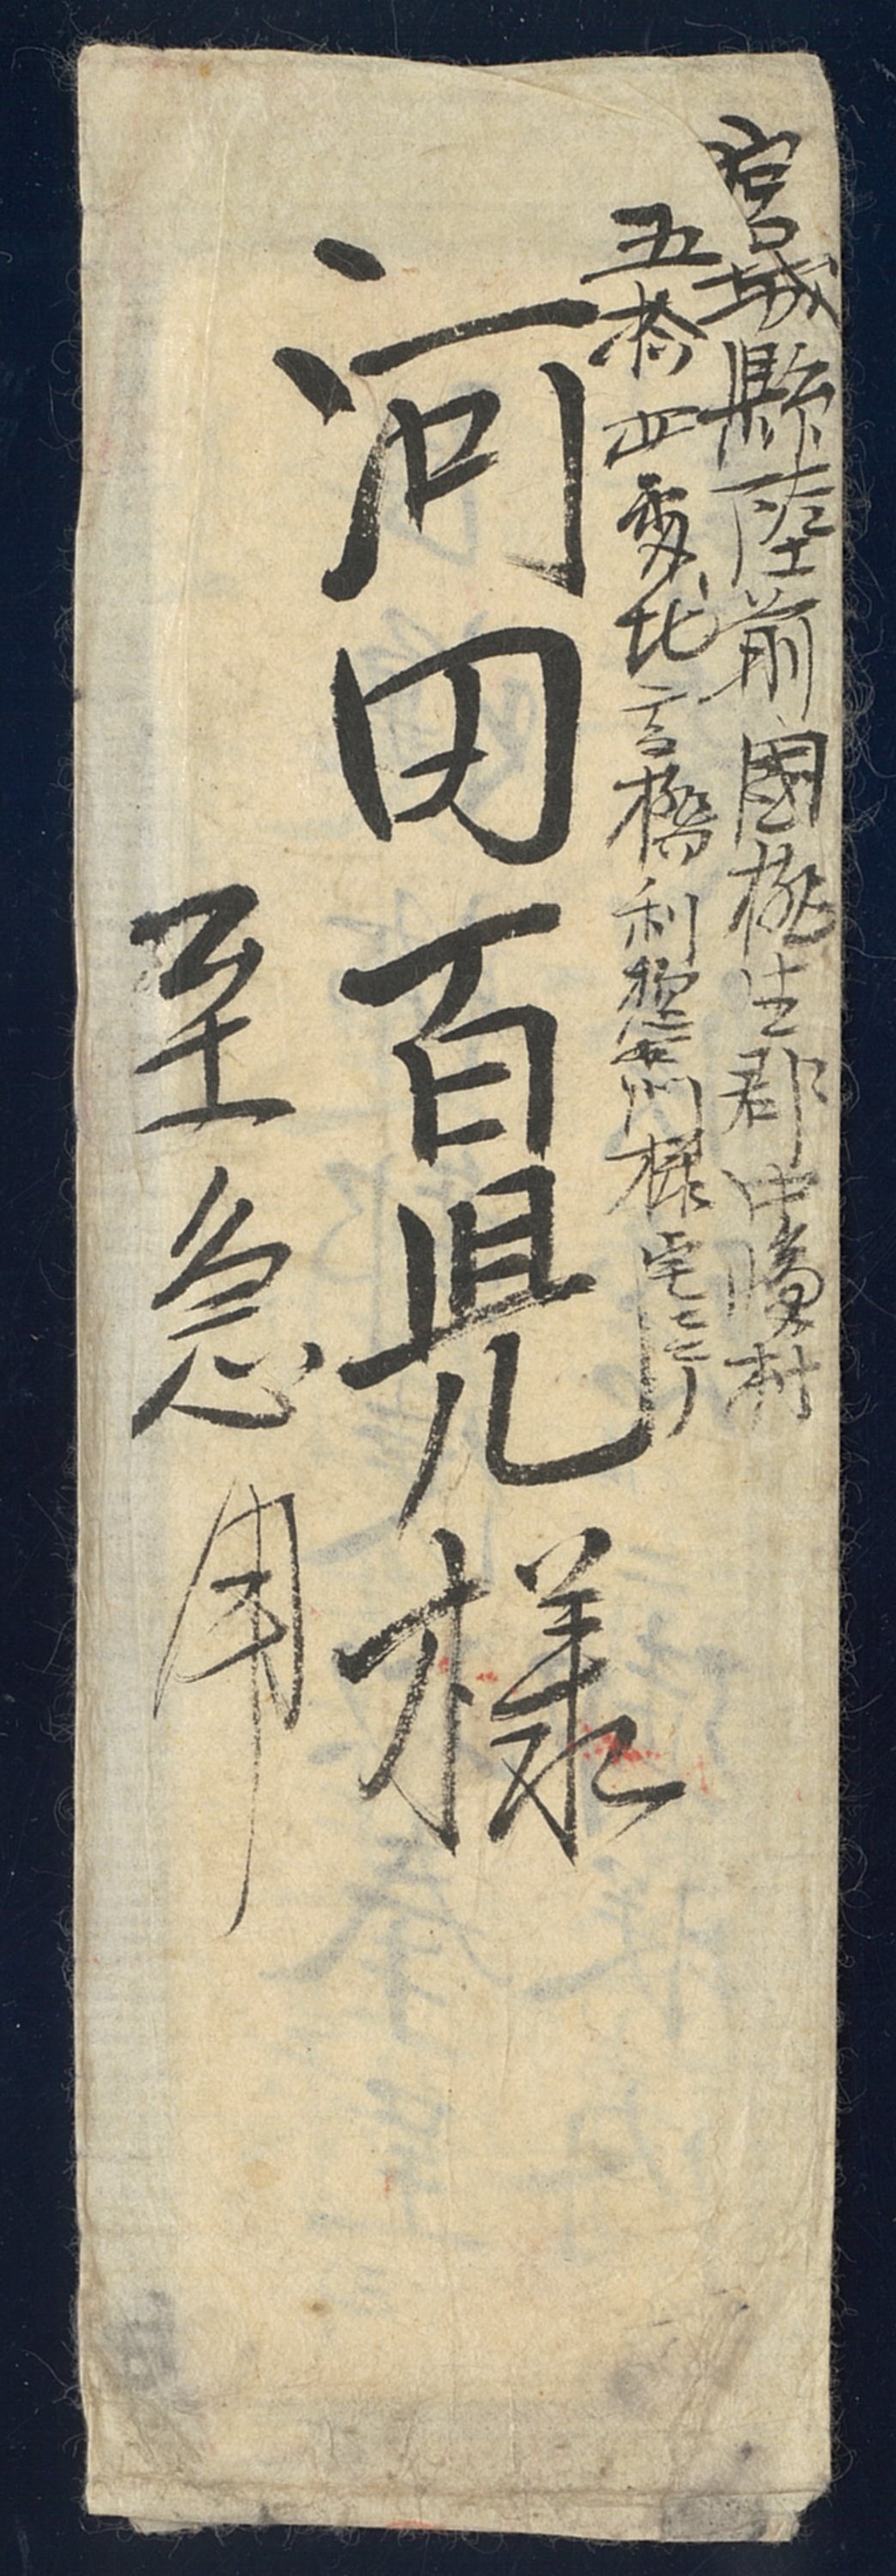 宮城縣陸前國桃生郡中島村
五拾四番地高橋利惣右衛門様宅ニテ
河田百見様
至急用